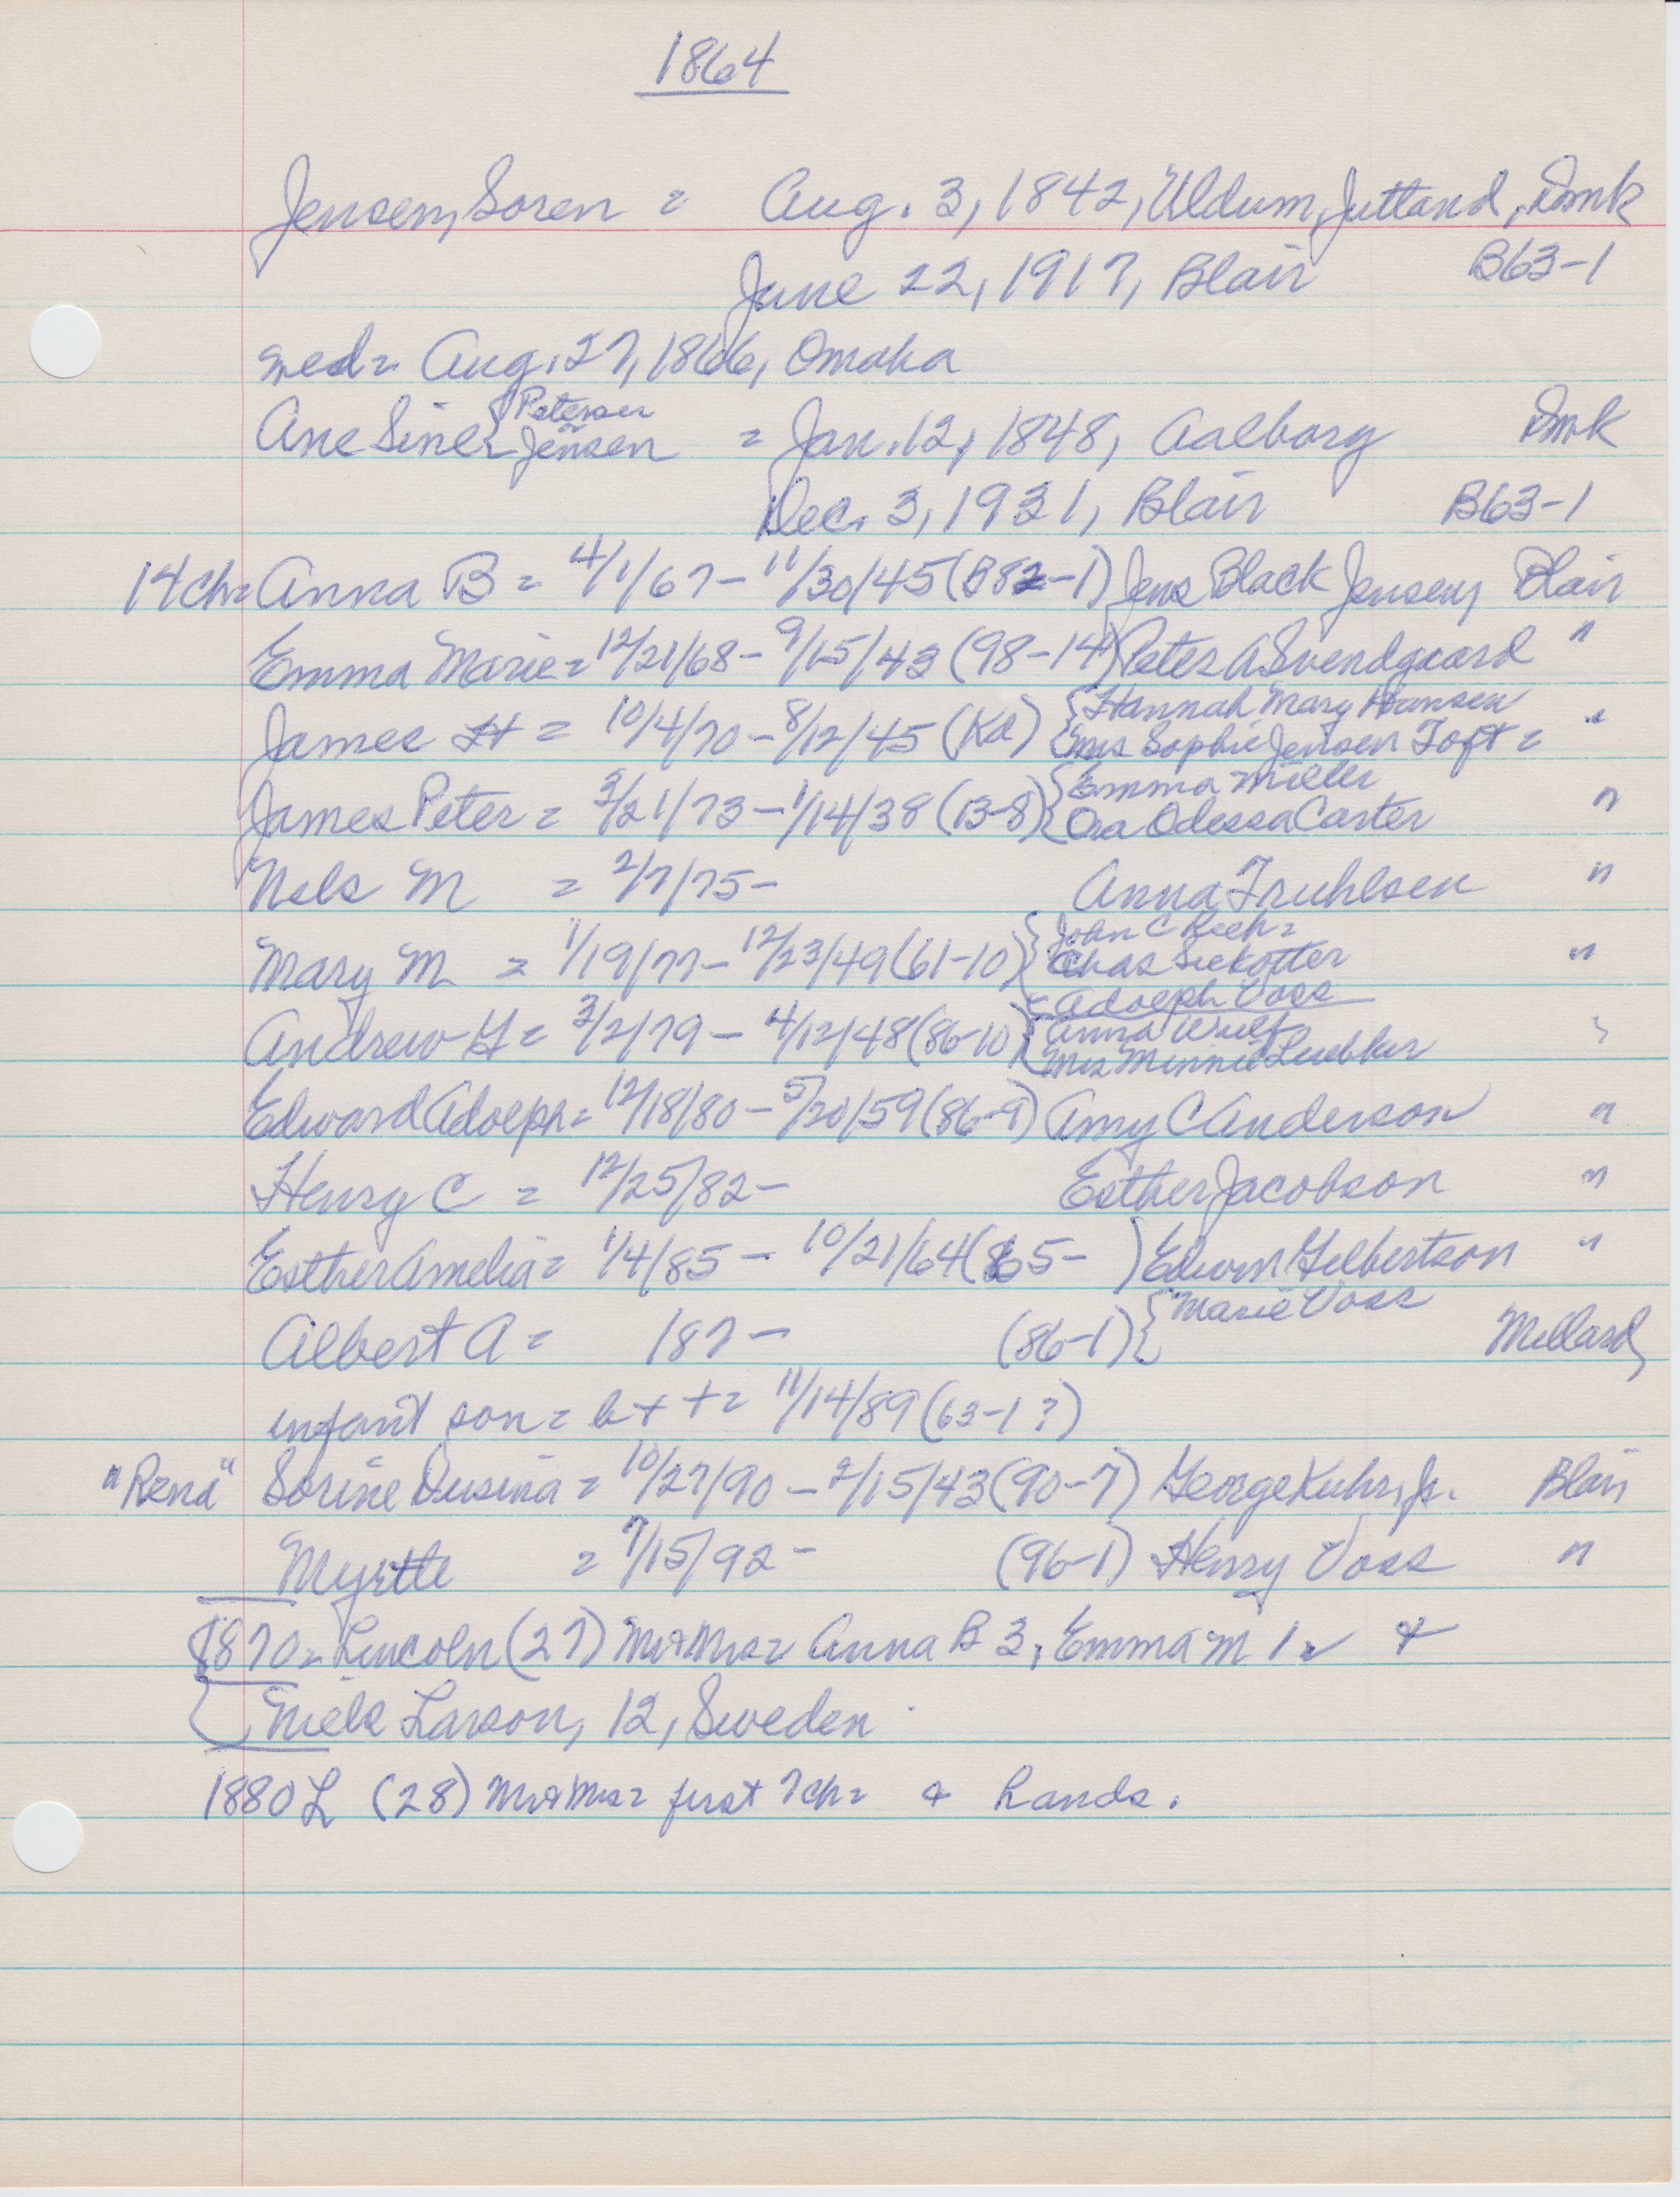 1864
Jensen, Soren = Aug. 3, 1842, Uldum, Jutland, Dmk
June 22, 1917, Blair B63-1
med = Aug. 27, 1866, Omaha
Petersen
Ane Sine { Jensen = Jan. 12, 1848, Aalborg Dmk
Dec. 3, 1931, Blair B63-1
14 ch = Anna B = 4/1/67 - 11/30/45 (B82-1) Jens Black Jensen, Blair
Emma Marie = 12/21/68 - 9/15/43 (98-14) Peter A Svendgaard "
Hannah Mary Hansen
James H = 10/4/70 - 8/12/45 (Ka) { Mrs Sophie Jensen Toft = "
Emma Miller
James Peter = 3/21/73 - 1/14/38 (13-8) { Ora Odessa Carter "
Nels M = 2/7/75 - Anna Fruhlsen "
John C Rich =
Mary M = 1/19/77 - 12/23/49 (61-10) { Chas Siekotter "
Adolph Voss
Anna Wulf
Andrew G = 3/2/79 - 4/12/48 (86-10) { Mrs Minnie Luebker "
Edward Adolph = 12/18/80 - 5/20/59 (86-9) Amy C Anderson "
Henry C = 12/25/82 - Esther Jacobson "
Esther Amelia = 1/4/85 - 10/21/64 (865- ) Edwin Gilbertson "
Marie Voss
Albert A = 187 - (86-1) { Millard,
infant son = b + + = 11/14/89 (63-1?)
"Rena" Sorine Dusina = 10/27/90 - 2/15/43 (90-7) George Kuhr, Jr. Blair
Myrtle = 7/15/92 - (96-1) Henry Voss "
1870 = Lincoln (27) Mr & Mrs = Anna B 3, Emma M 1 &
Niels Larson, 12, Sweden
1880 L (28) Mr & Mrs = first 7 ch = & hands.